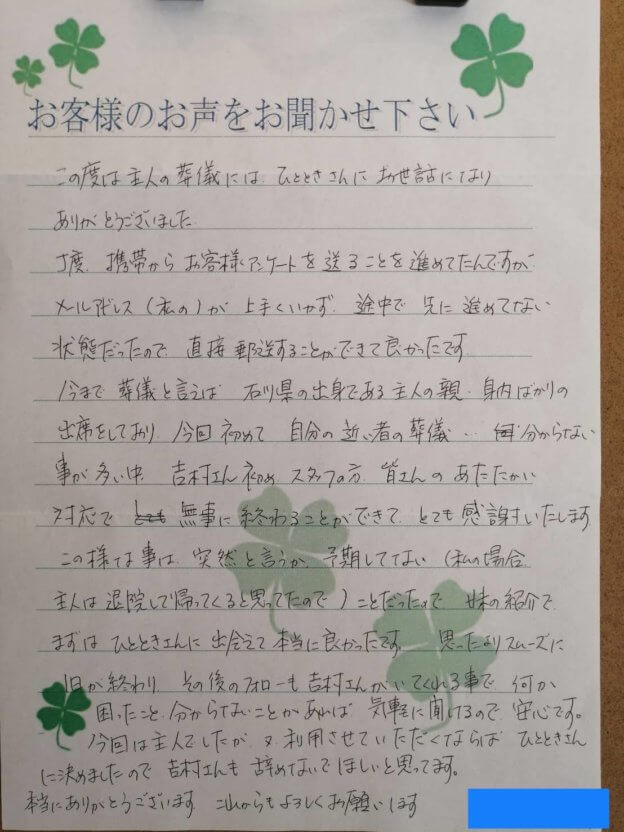 お客様のお声をお聞かせ下さい
この度は主人の葬儀には、ひとときさんにお世話になり
ありがとうございました
1度、携帯からお客様アンケートを送ることを進めてたんですが
メールアドレス(私の)が上手くいかず、途中で先に進めてない
状態だったので、直接郵送することができて良かったです
今まで葬儀と言えば石川県の出身である主人の親・身内ばかりの
出席をしており、今回初めて自分の近い者の葬儀… 分からない
事が多い中、吉村さん初めスタッフの方、皆さんのあたたかい
対応で 無事に終わることができて、とても感謝いたします
この様な事は、突然と言うか、予期してない(私の場合、
主人は退院して帰ってくると思ってたので)ことだったので 妹の紹介で
まずはひとときさんに出会えて本当に良かったです 思ったよりスムーズに
1日が終わり、その後のフォローも吉村さんがいてくれる事で、何か
困ったこと、分からないことがあれば気軽に聞けるので安心です。
今回は主人でしたが、又利用させていただくならば ひとときさん
に決めましたので吉村さんも辞めないでほしいと思ってます。
本当にありがとうございます これからもよろしくお願いします